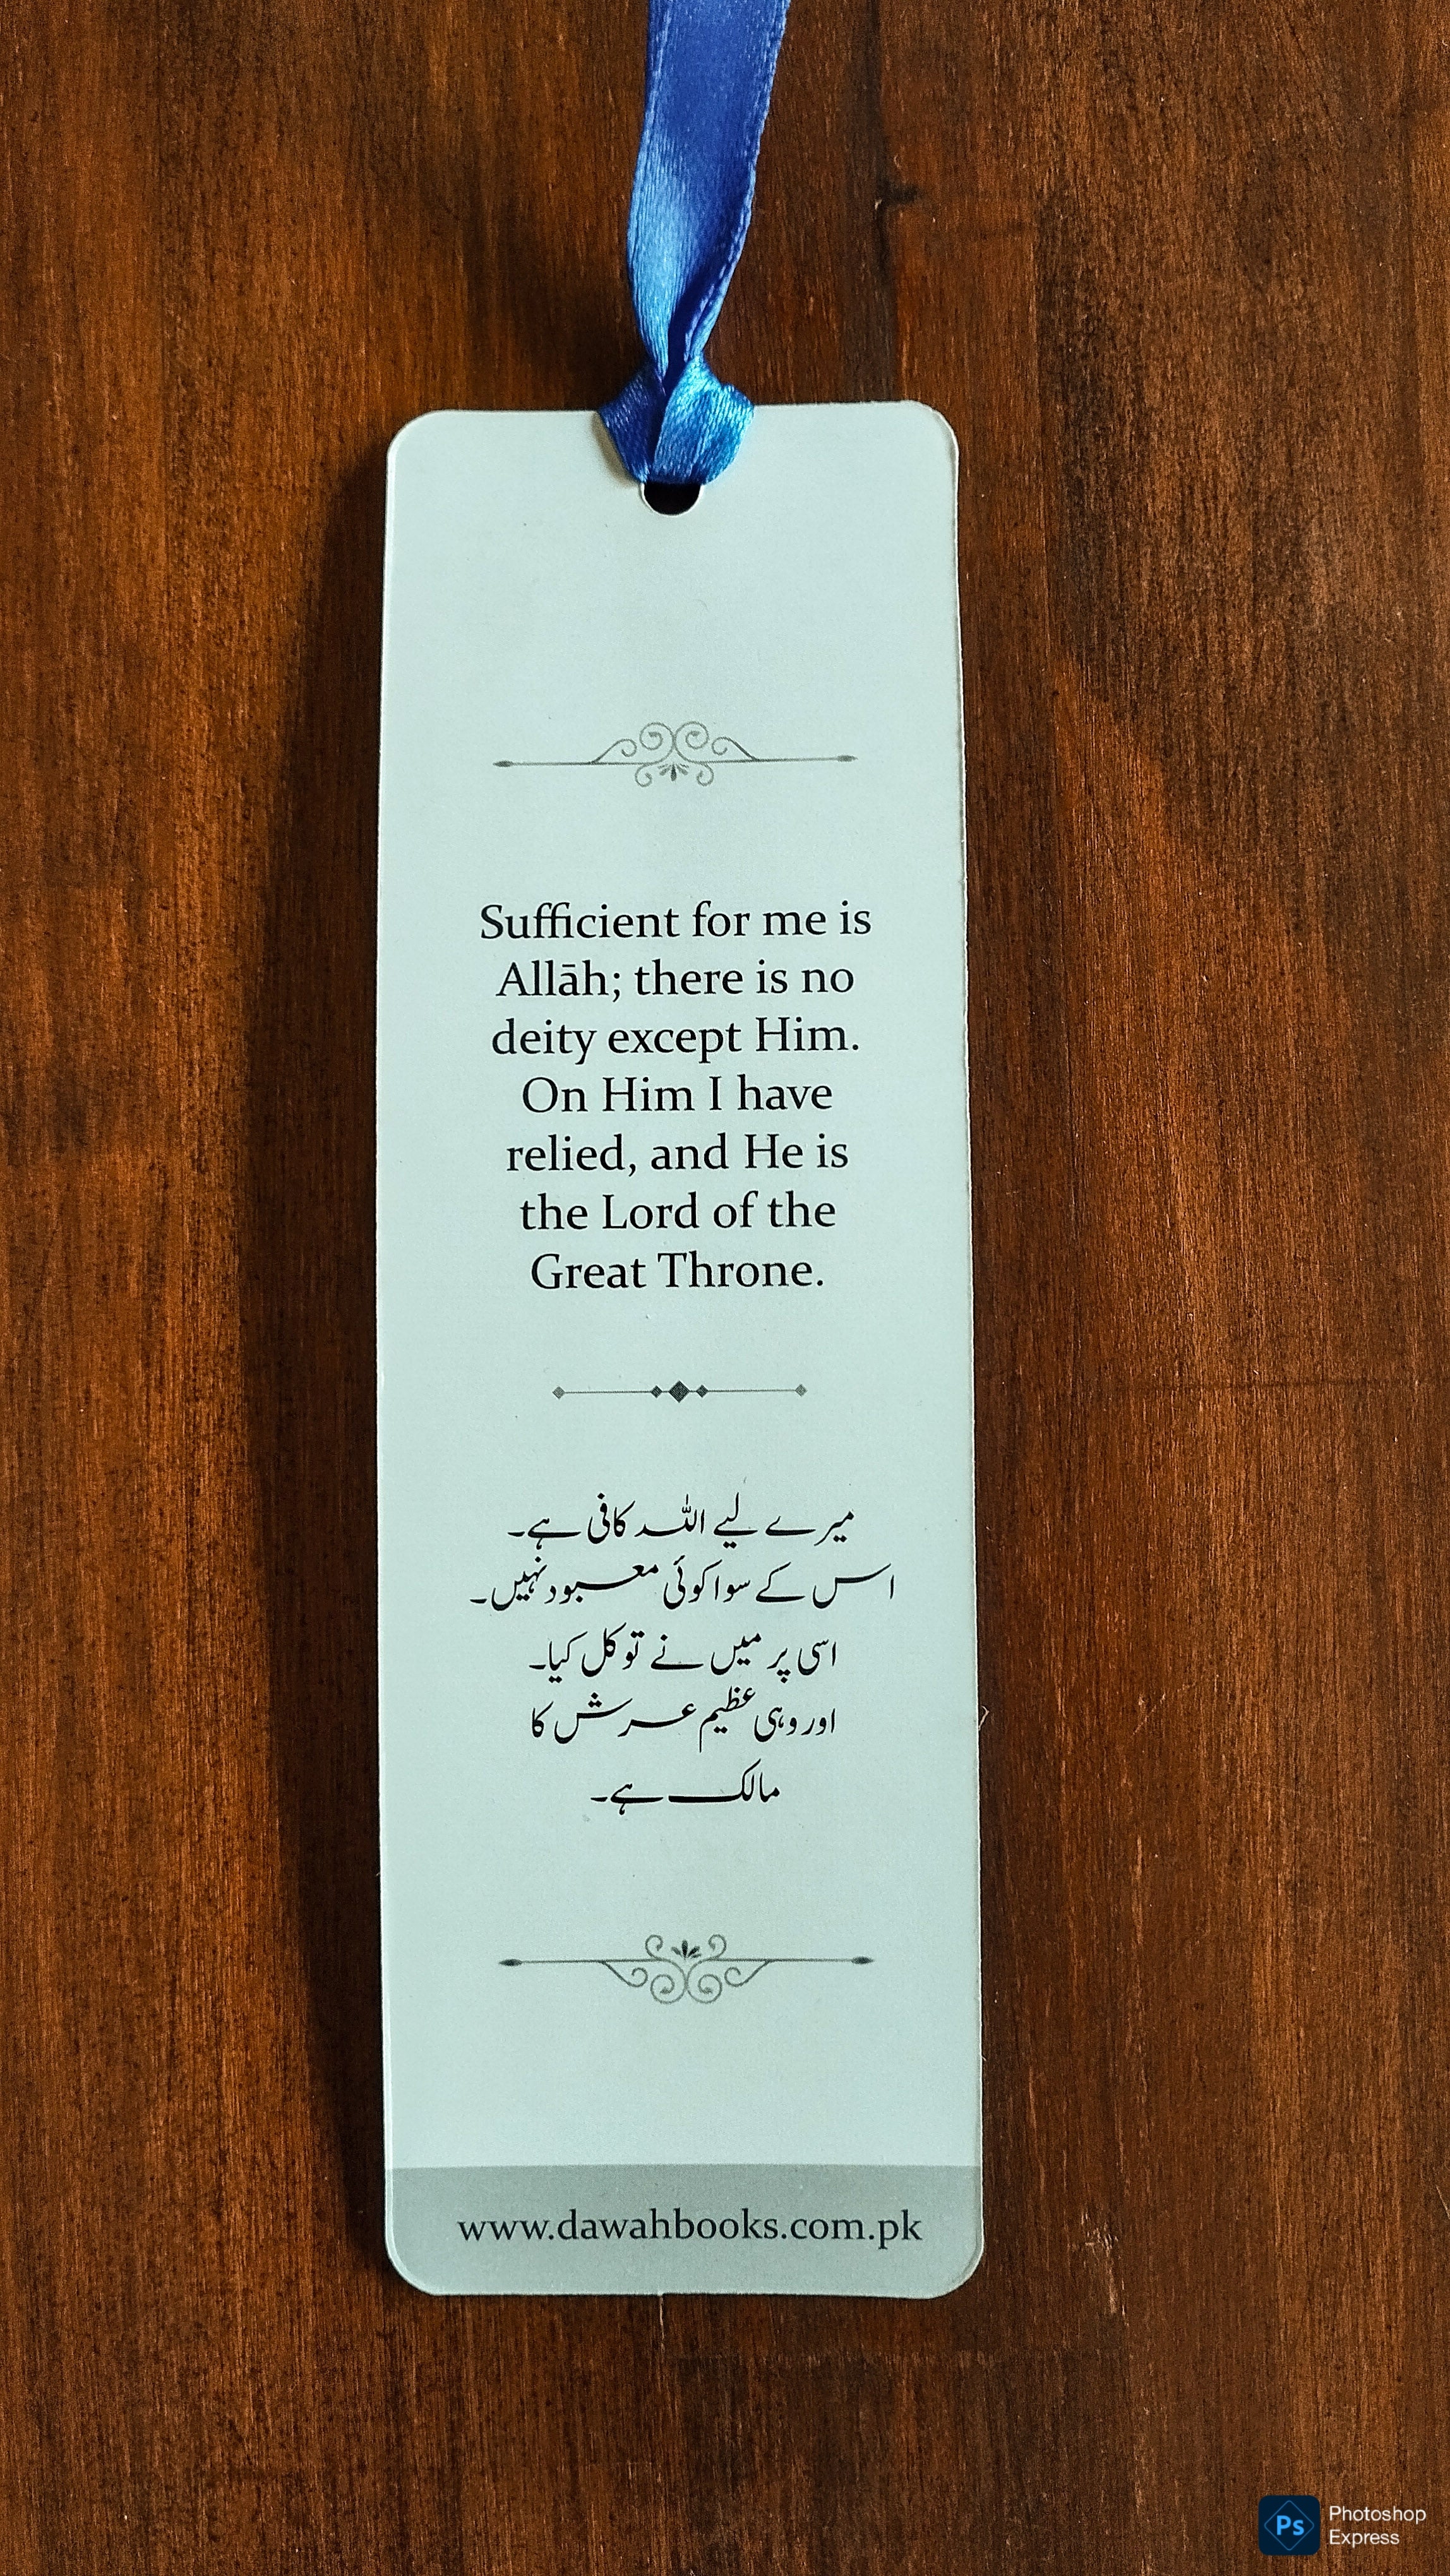 Sufficient for me is
Allāh; there is no
deity except Him.
On Him I have
relied, and He is
the Lord of the
Great Throne.
میرے لیے اللہ کافی ہے۔
اس کے سوا کوئی معبود نہیں۔
اسی پر میں نے توکل کیا۔
اور وہی عظیم عرش کا
مالک ہے۔
www.dawahbooks.com.pk
Ps
Photoshop
Express